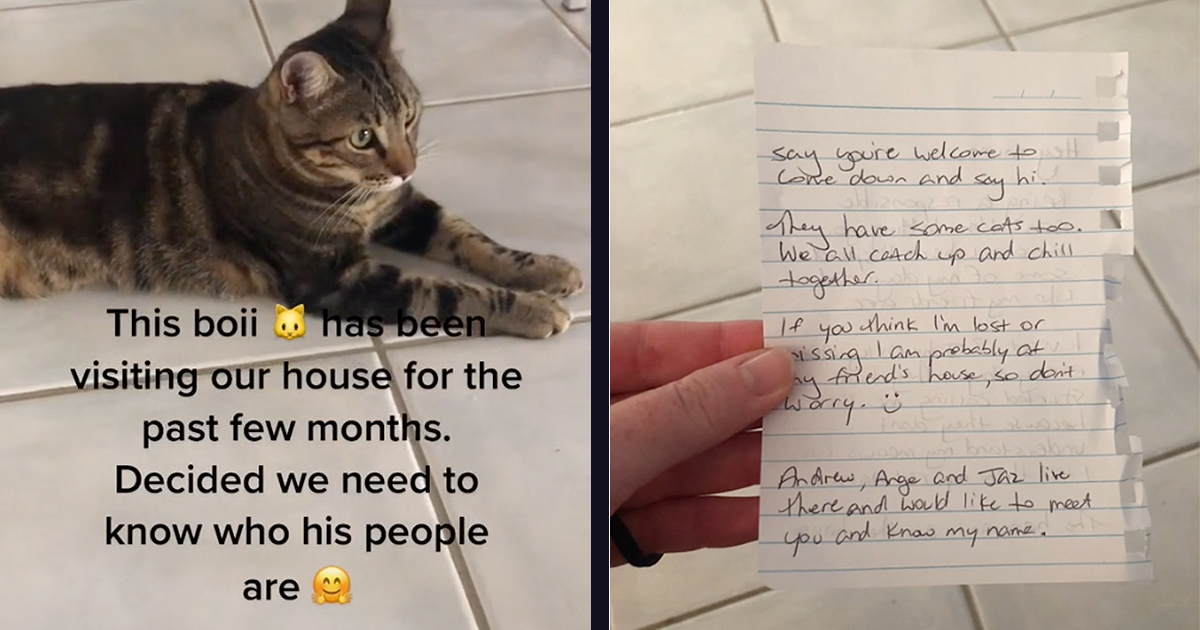 This boii 🐱 has been
visiting our house for the
past few months.
Decided we need to
know who his people
are 🤗
say you're welcome to
come down and say hi.
They have some cats too.
We all catch up and chill
together.
If you think I'm lost or
missing I am probably at
my friend's house, so don't
worry. :)
Andrew, Ange and Jaz live
there and would like to meet
you and know my name.